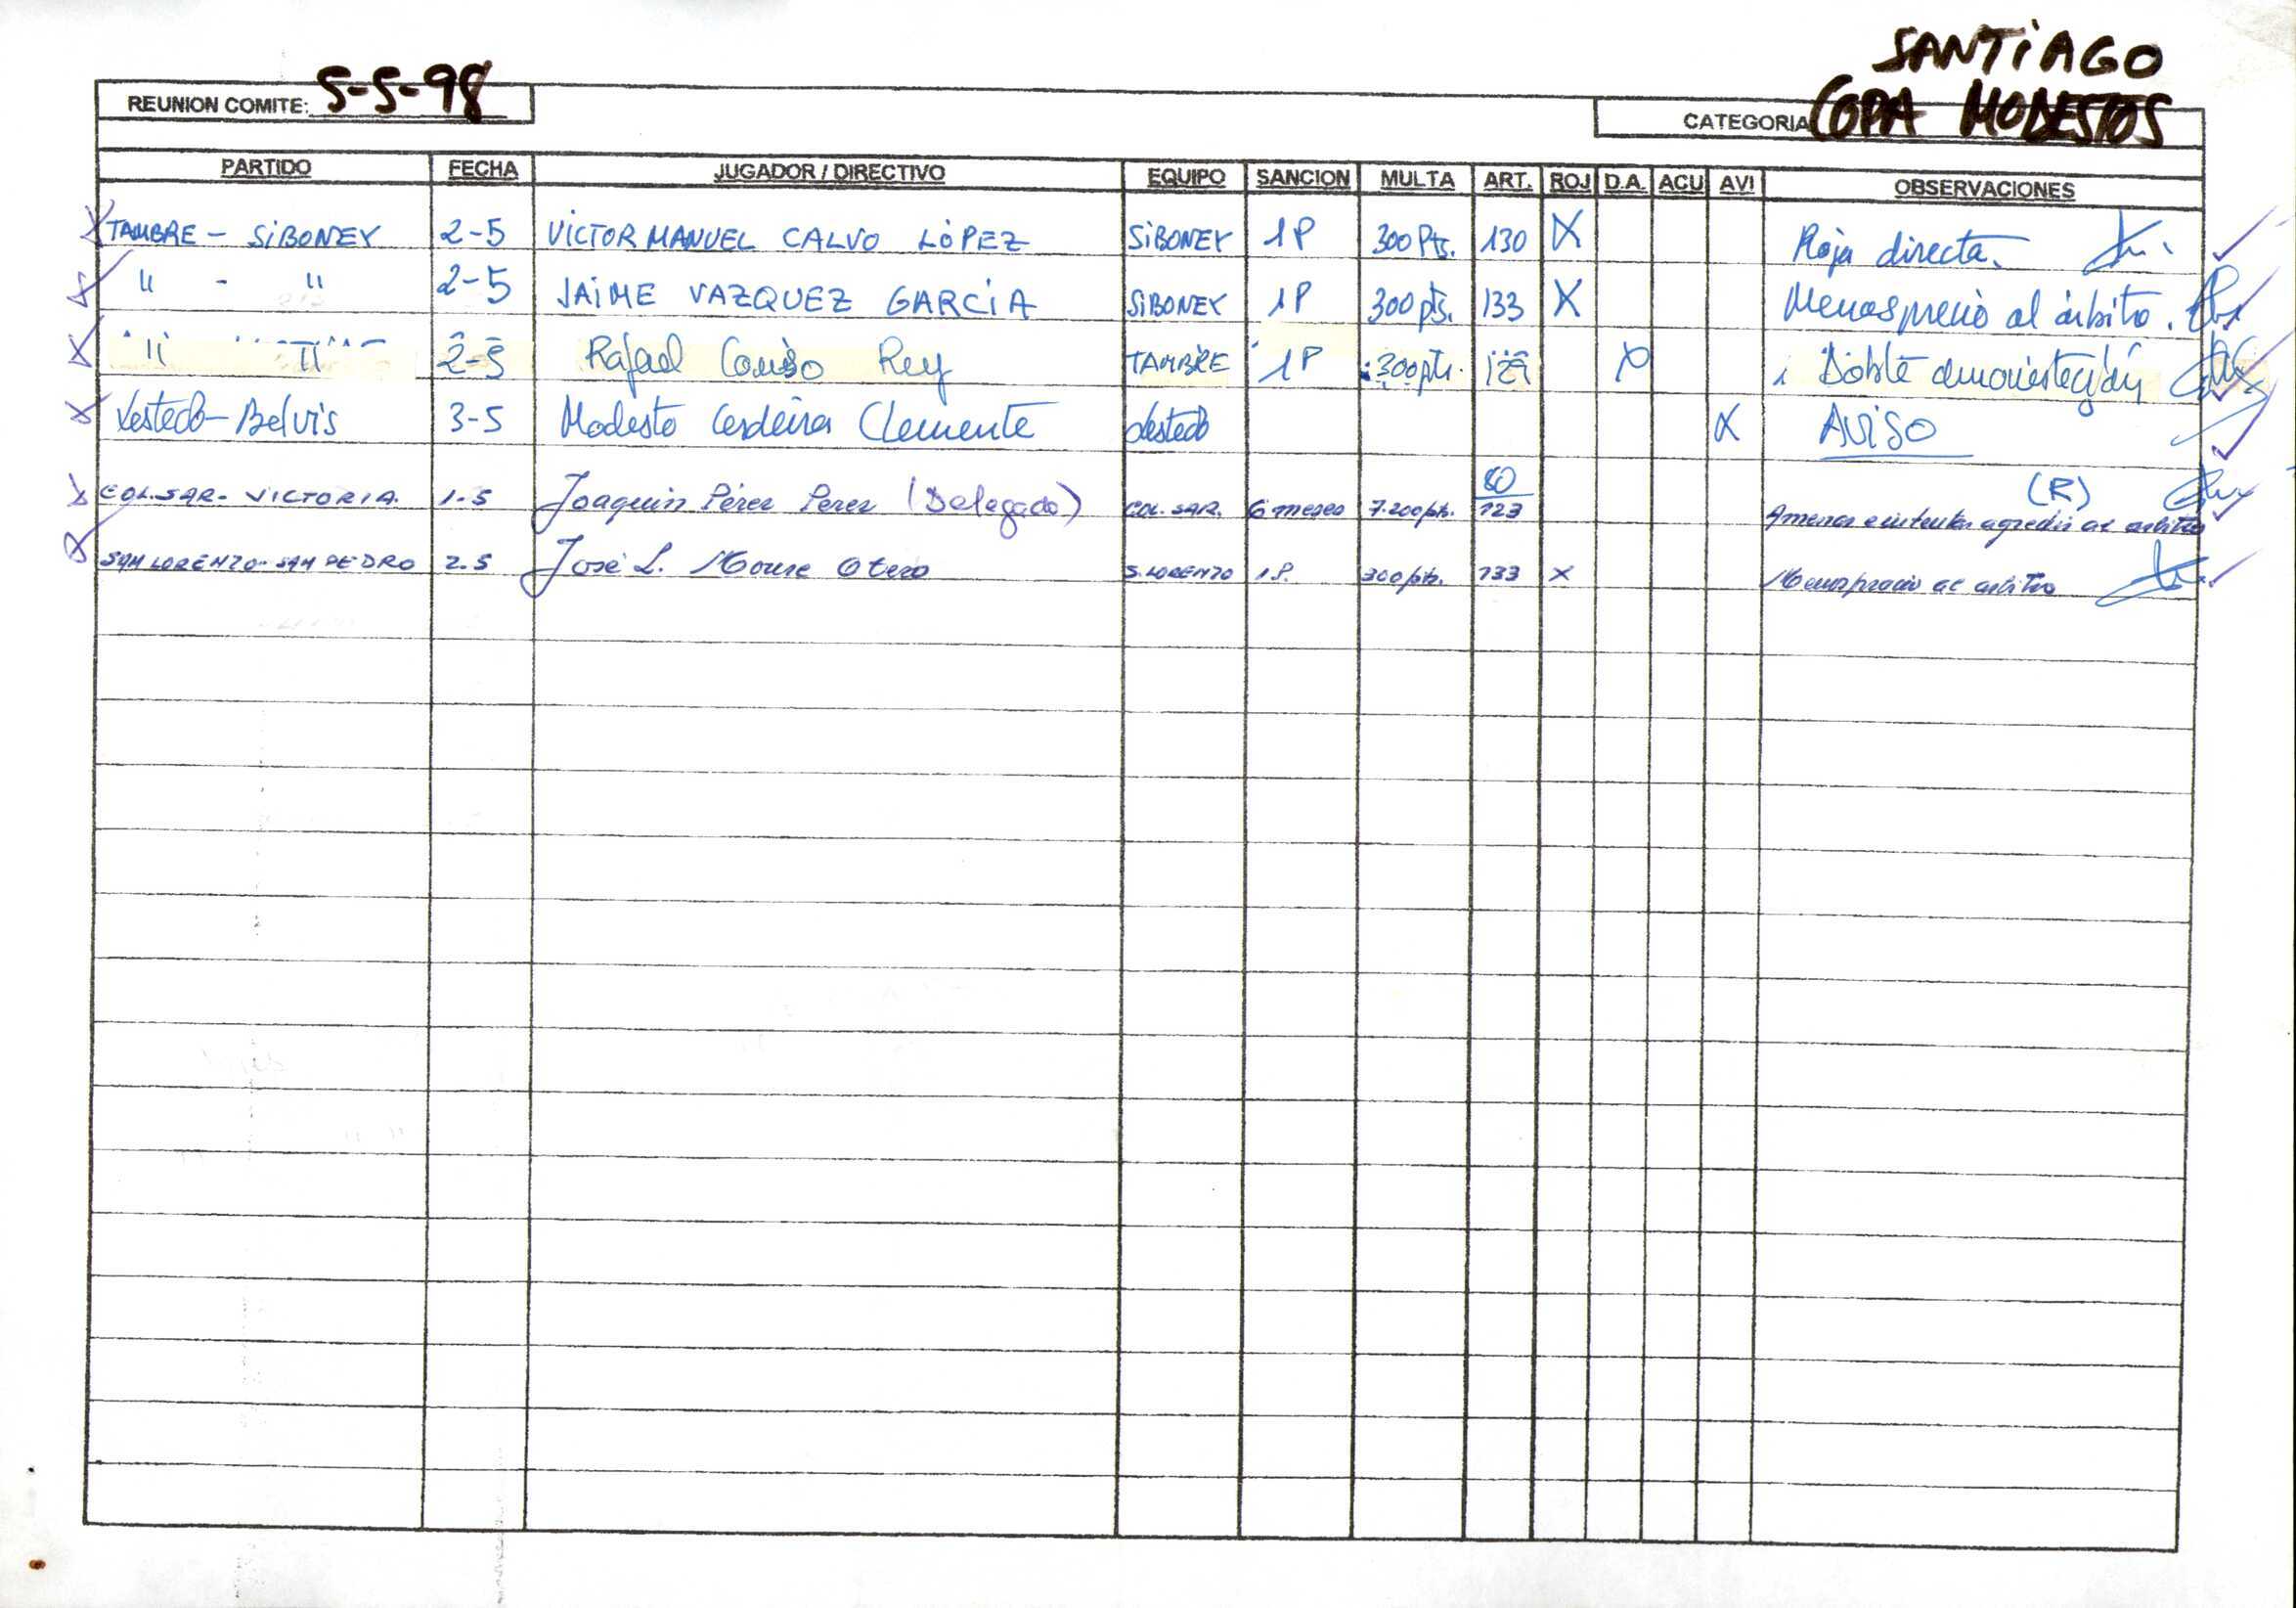 SANTIAGO
REUNION COMITE: 5-5-98 CATEGORIA COPA MODESTOS
PARTIDO FECHA JUGADOR / DIRECTIVO EQUIPO SANCION MULTA ART. ROJ D.A. ACU AVI OBSERVACIONES
X TAMBRE - SIBONEY 2-5 VICTOR MANUEL CALVO LÓPEZ SIBONEY 1P 300 Pts. 130 X Roja directa.
X " - " 2-5 JAIME VAZQUEZ GARCIA SIBONEY 1P 300 pts. 133 X Menosprecio al árbitro.
X " " 2-5 Rafael Rey TAMBRE 1P 300 pts. 129 X Doble amonestación
X Xestedo - Belvis 3-5 Modesto Cerdeira Clemente Xestedo X AVISO
80 (R)
X COL. SAR - VICTORIA. 1-5 Joaquín Pérez Perez (Delegado) COL. SAR. 6 meses 7.200 pts. 123 Amenaza e intentar agredir al arbitro
X SAN LORENZO - SAN PEDRO 2-5 José L. Mouse Otero S. LORENZO 1P. 300 pts. 133 X Menosprecio al arbitro